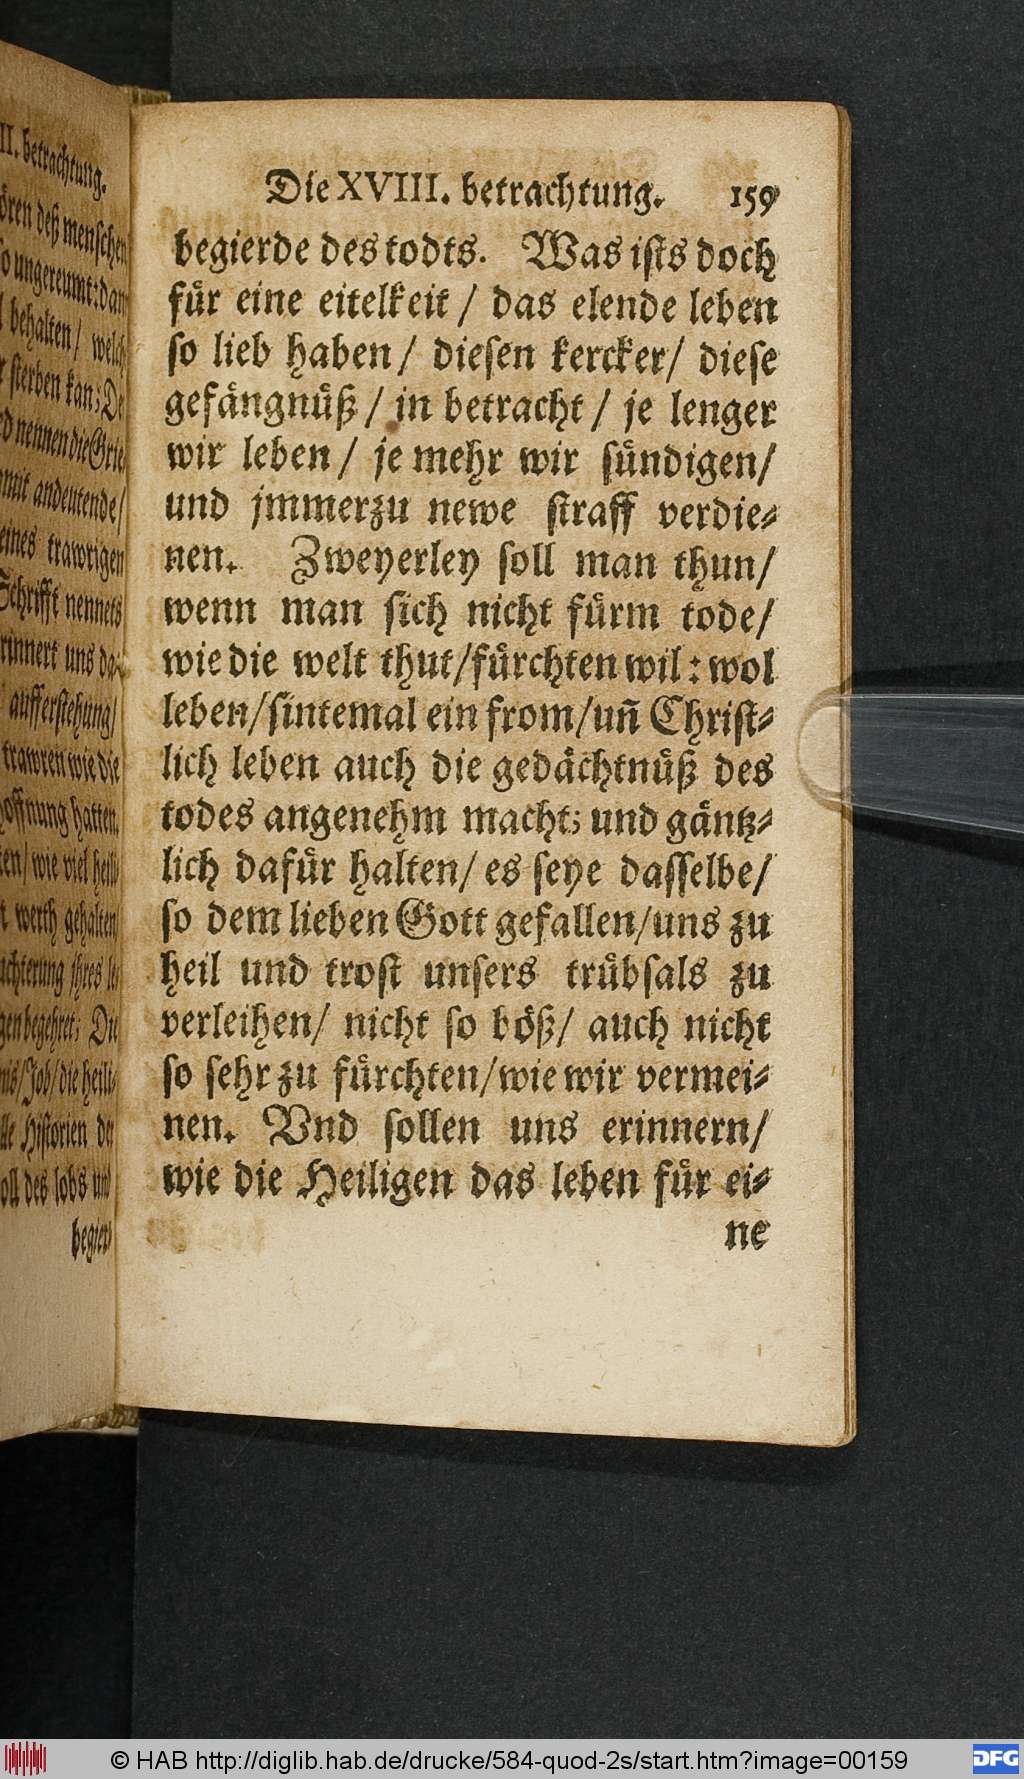 II. betrachtung.
deß menschen
so ungereumt: dan
behalten / welch
sterben kan; De
nennen die Grie
mit andeutende /
eines trawrigen
Schrifft nennets
erinnert uns da-
aufferstehung /
trawren wie die
hoffnung hatten.
wie viel heili
werth gehalten
ihres le
begehret; Die
Job / die heili-
Historien der
des Jobs und
begier-
Die XVIII. betrachtung. 159
begierde des todts. Was ists doch
für eine eitelkeit / das elende leben
so lieb haben / diesen kercker / diese
gefängnüß / in betracht / je lenger
wir leben / je mehr wir sündigen /
und jmmerzu newe straff verdie-
nen. Zweyerley soll man thun /
wenn man sich nicht fürm tode /
wie die welt thut / fürchten wil : wol
leben / sintemal ein from / uñ Christ-
lich leben auch die gedächtnüß des
todes angenehm macht; und gäntz-
lich dafür halten / es seye dasselbe /
so dem lieben Gott gefallen / uns zu
heil und trost unsers trübsals zu
verleihen / nicht so böß / auch nicht
so sehr zu fürchten / wie wir vermei-
nen. Vnd sollen uns erinnern /
wie die Heiligen das leben für ei-
ne
© HAB http://diglib.hab.de/drucke/584-quod-2s/start.htm?image=00159
DFG